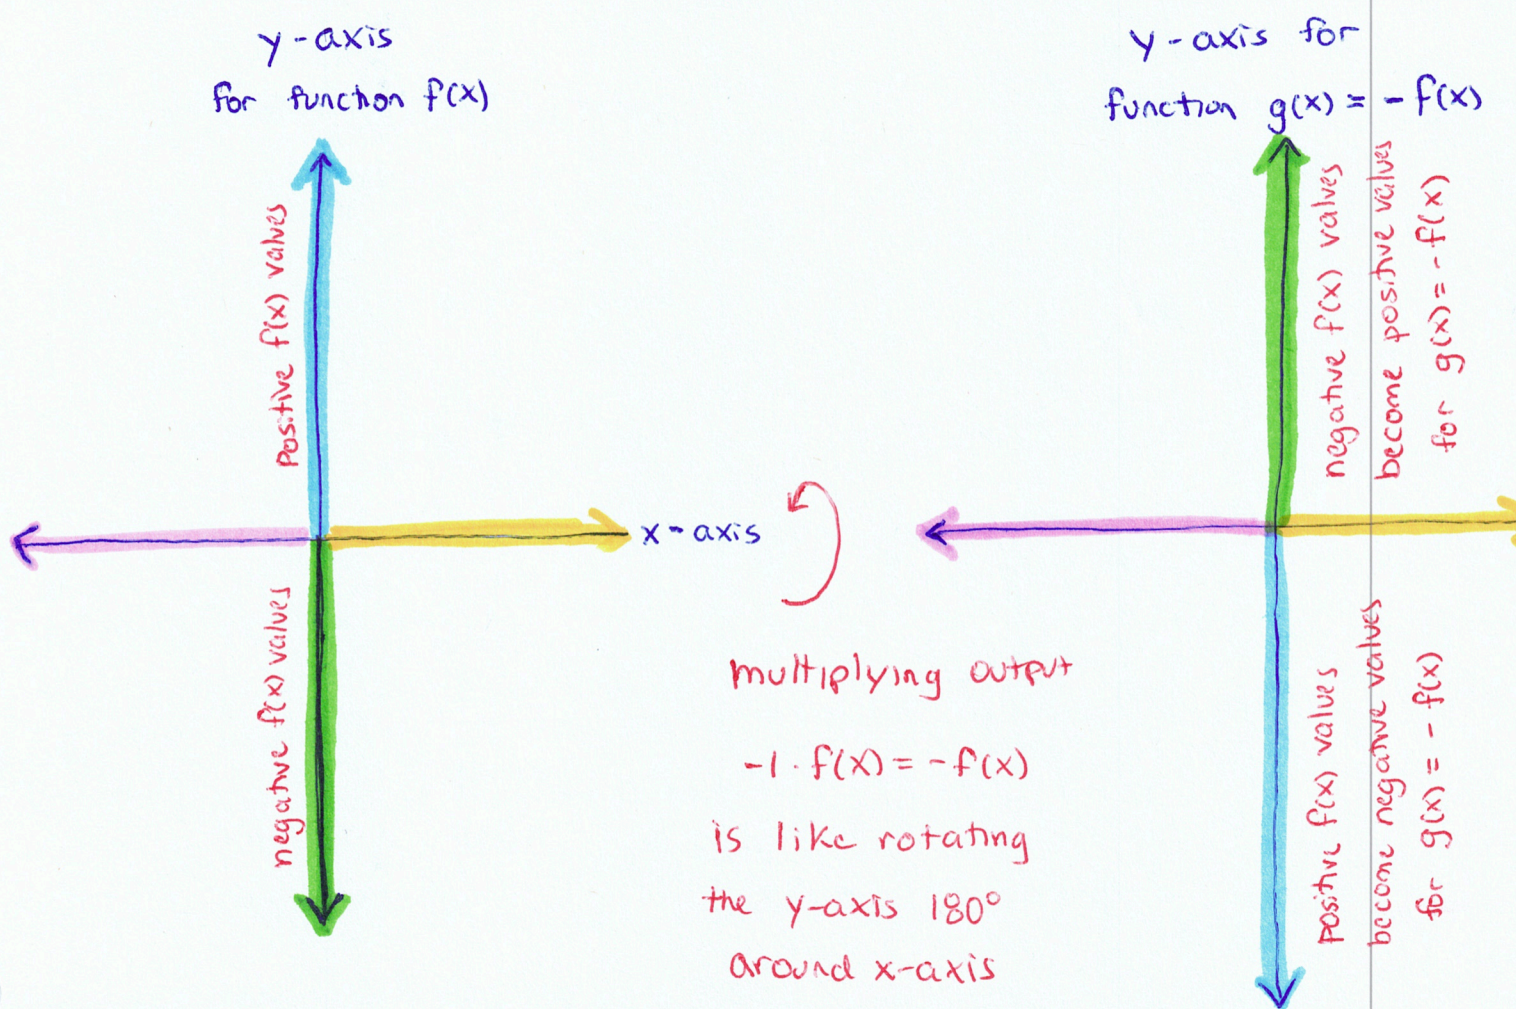 y-axis
for function f(x)
positive f(x) values
negative f(x) values
x-axis
multiplying output
-1 · f(x) = -f(x)
is like rotating
the y-axis 180°
around x-axis
y-axis for
function g(x) = -f(x)
negative f(x) values
become positive values
for g(x) = -f(x)
positive f(x) values
become negative values
for g(x) = -f(x)